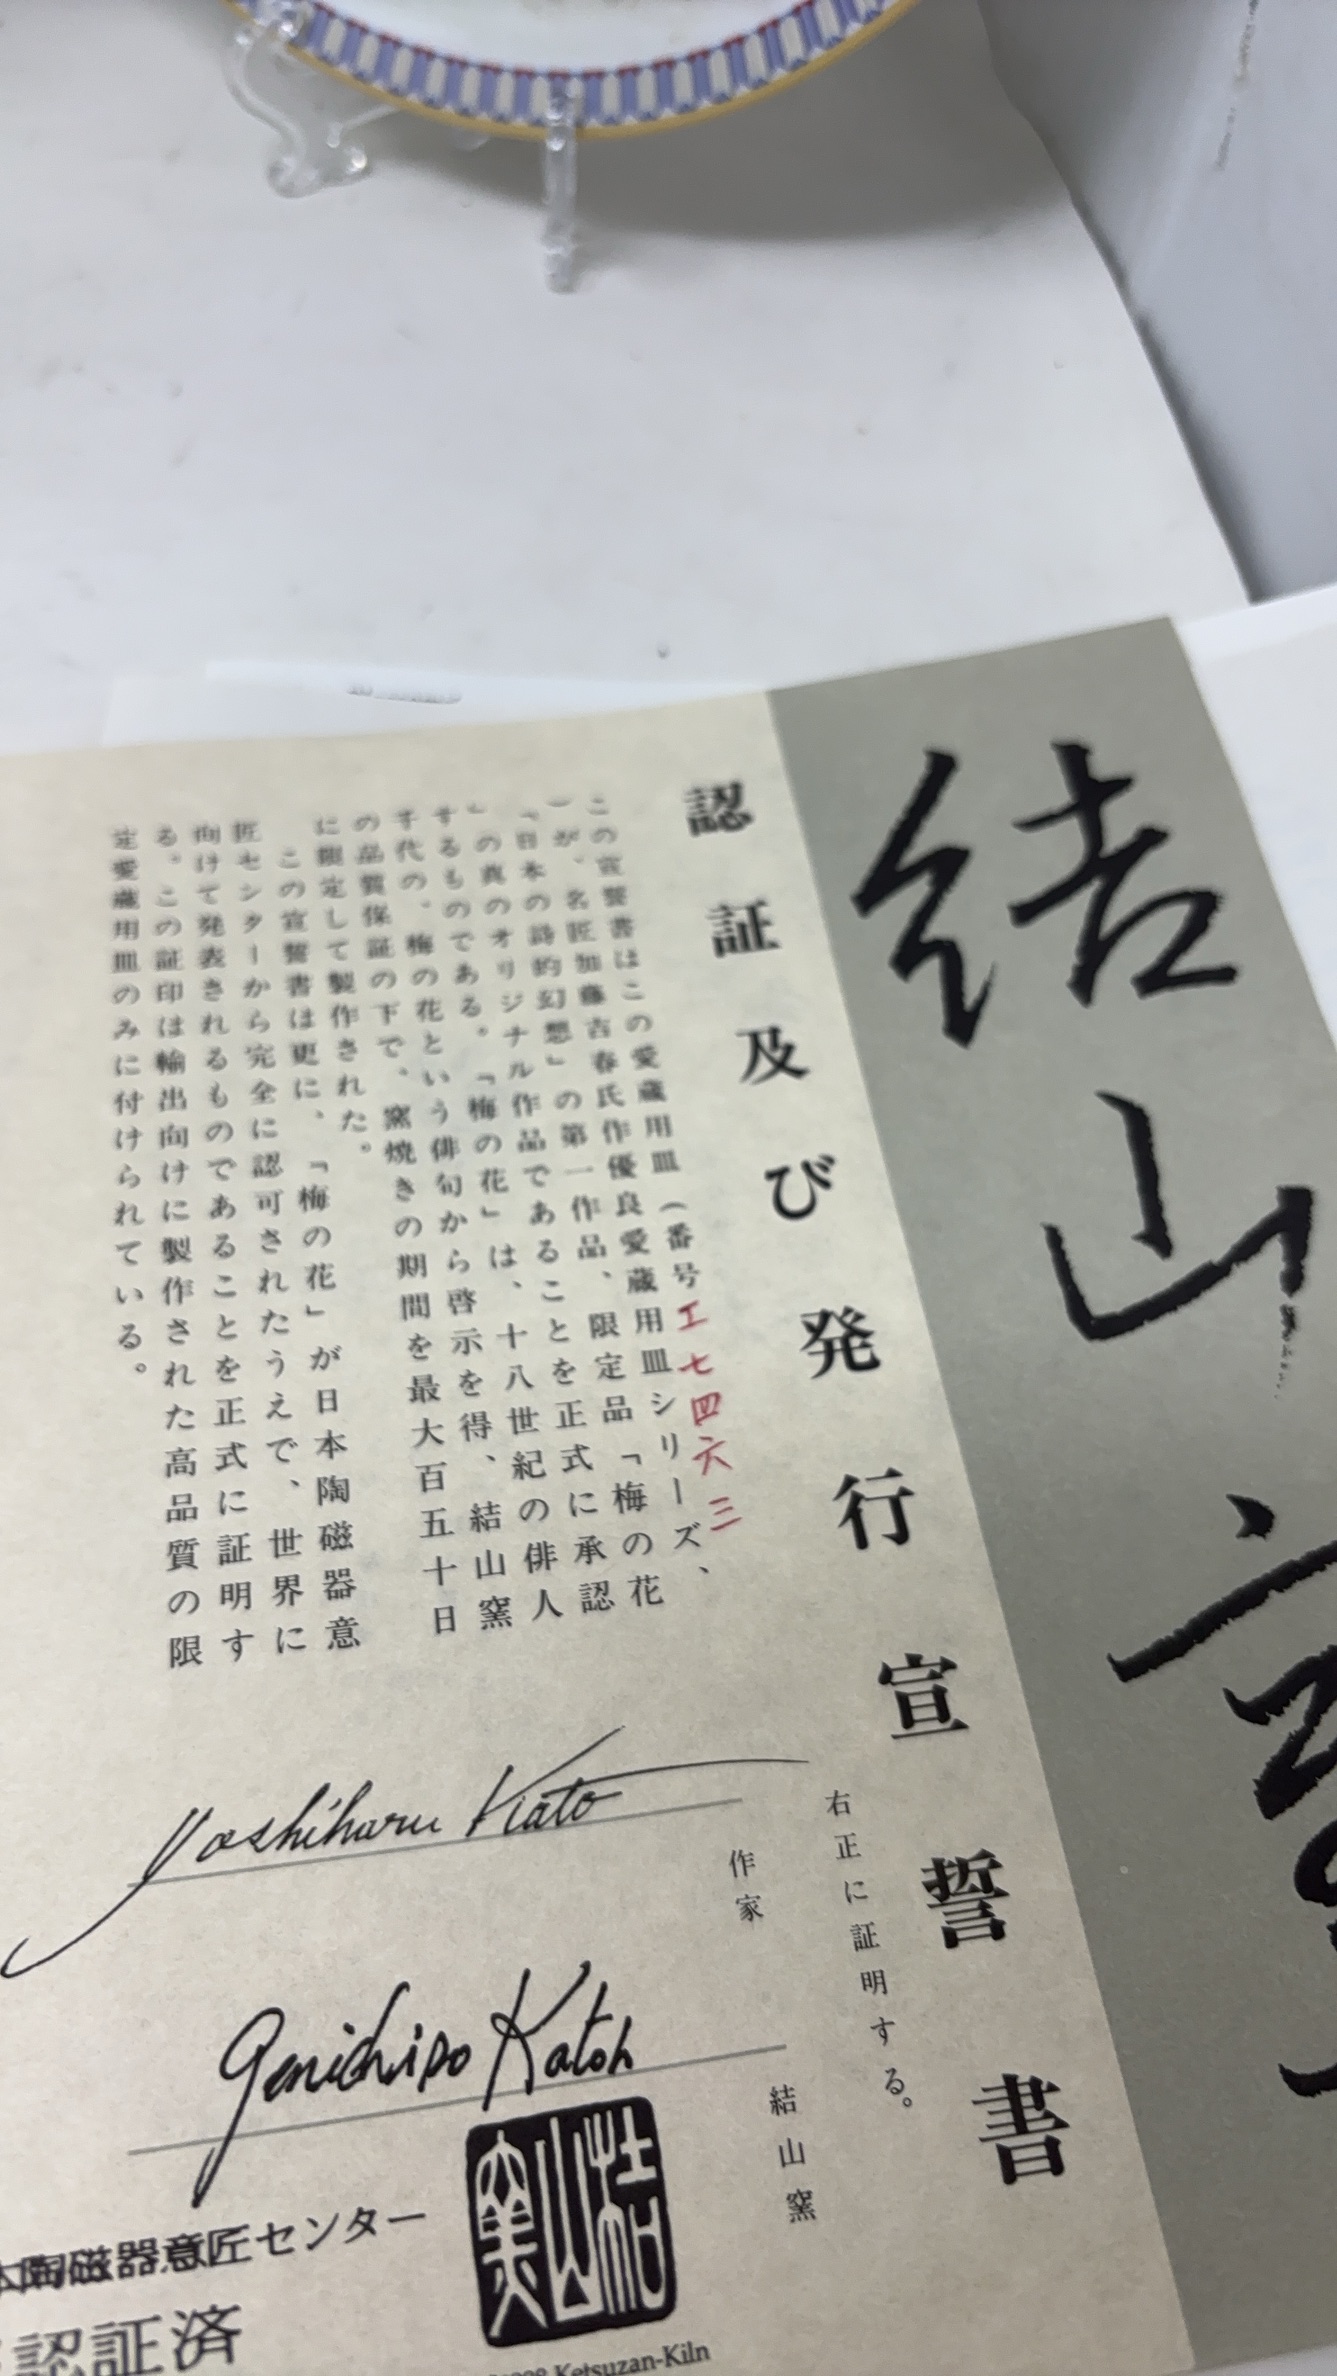 結山窯
認証及び発行宣誓書
この宣誓書はこの愛蔵用皿(番号エ七四六三
)が、名匠加藤吉春氏作優良愛蔵用皿シリーズ、
「日本の詩的幻想」の第一作品、限定品「梅の花
」の真のオリジナル作品であることを正式に承認
するものである。「梅の花」は、十八世紀の俳人
千代の、梅の花という俳句から啓示を得、結山窯
の品質保証の下で、窯焼きの期間を最大百五十日
に限定して製作された。
この宣誓書は更に、「梅の花」が日本陶磁器意
匠センターから完全に認可されたうえで、世界に
向けて発表されるものであることを正式に証明す
る。この証印は輸出向けに製作された高品質の限
定愛蔵用皿のみに付けられている。
右正に証明する。
作家
Yoshiharu Kato
結山窯
Genichiro Katoh
結山窯
本陶磁器意匠センター
認証済
Ketsuzan-Kiln